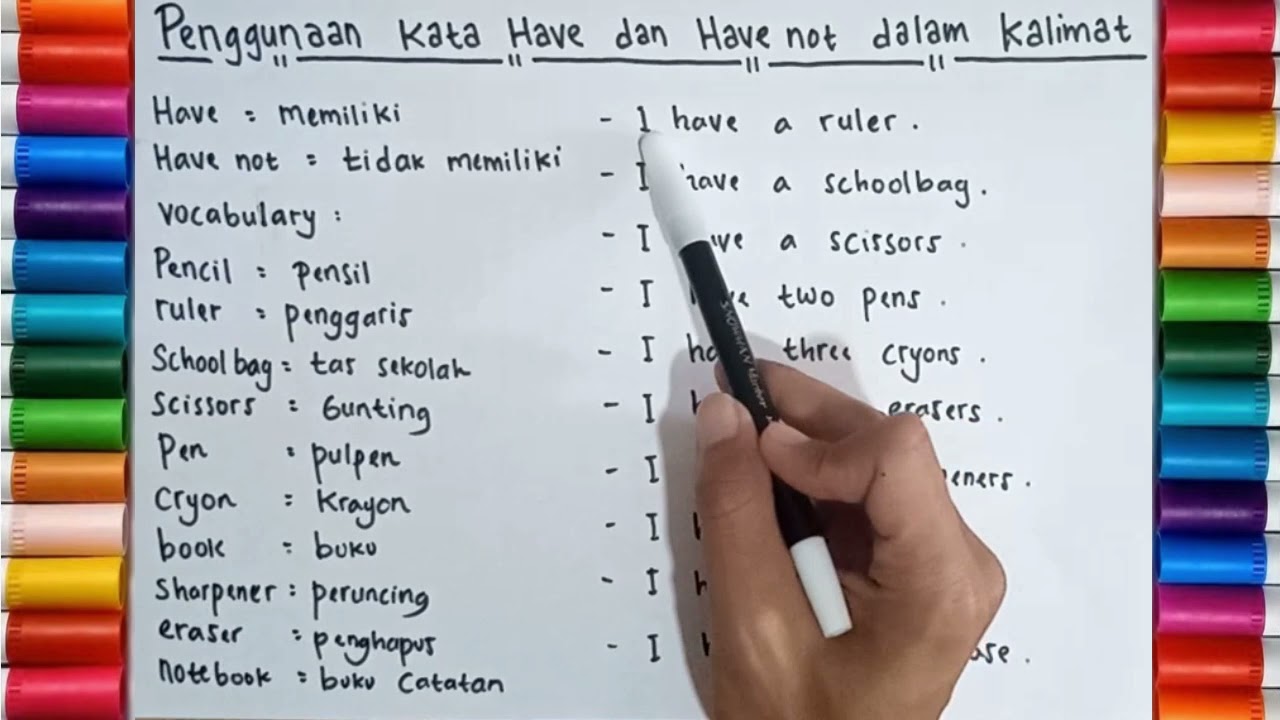 Penggunaan kata Have dan Have not dalam kalimat
Have = memiliki
Have not = tidak memiliki
Vocabulary :
Pencil = pensil
ruler = penggaris
School bag = tas sekolah
Scissors = Gunting
Pen = pulpen
Cryon = Krayon
book = buku
Sharpener = peruncing
eraser = penghapus
notebook = buku Catatan
- I have a ruler.
- I have a schoolbag.
- I have a scissors.
- I two pens.
- I three cryons.
- I erasers.
- I
- I
- I
- I
SNOWMAN Marker